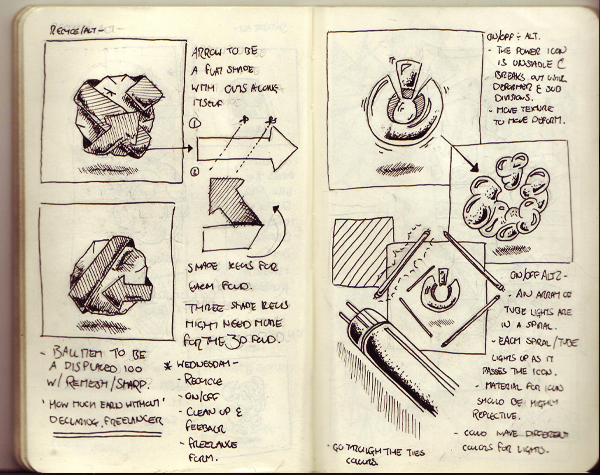 RECYCLE/ALT -
ARROW TO BE
A FLAT SHAPE
WITH CUTS ALONG
ITSELF
①
②
SHAPE KEYS FOR
EACH FOLD.
THREE SHAPE KEYS
MIGHT NEED MORE
FOR THE 3D FOLD.
- BALL ITEM TO BE
A DISPLACED 100
W/ REMESH/SHARP.
'HOW MUCH EARN WITHOUT'
DECLARING, FREELANCER
* WEDNESDAY -
- RECYCLE
- ON/OFF
- CLEAN UP &
FEEDBACK
- FREELANCE
FORM.
ON/OFF - ALT.
- THE POWER ICON
IS UNSTABLE &
BREAKS OUT WITH
DEFORMER & SUB
DIVISIONS.
- MOVE TEXTURE
TO MOVE DEFORM.
ON/OFF ALT2 -
- AN ARRAY OF
TUBE LIGHTS ARE
IN A SPIRAL.
- EACH SPIRAL/TUBE
LIGHTS UP AS IT
PASSES THE ICON.
- MATERIAL FOR ICON
SHOULD BE HIGHLY
REFLECTIVE.
- COULD HAVE DIFFERENT
COLORS FOR LIGHTS.
- GO THROUGH THE
COLORS